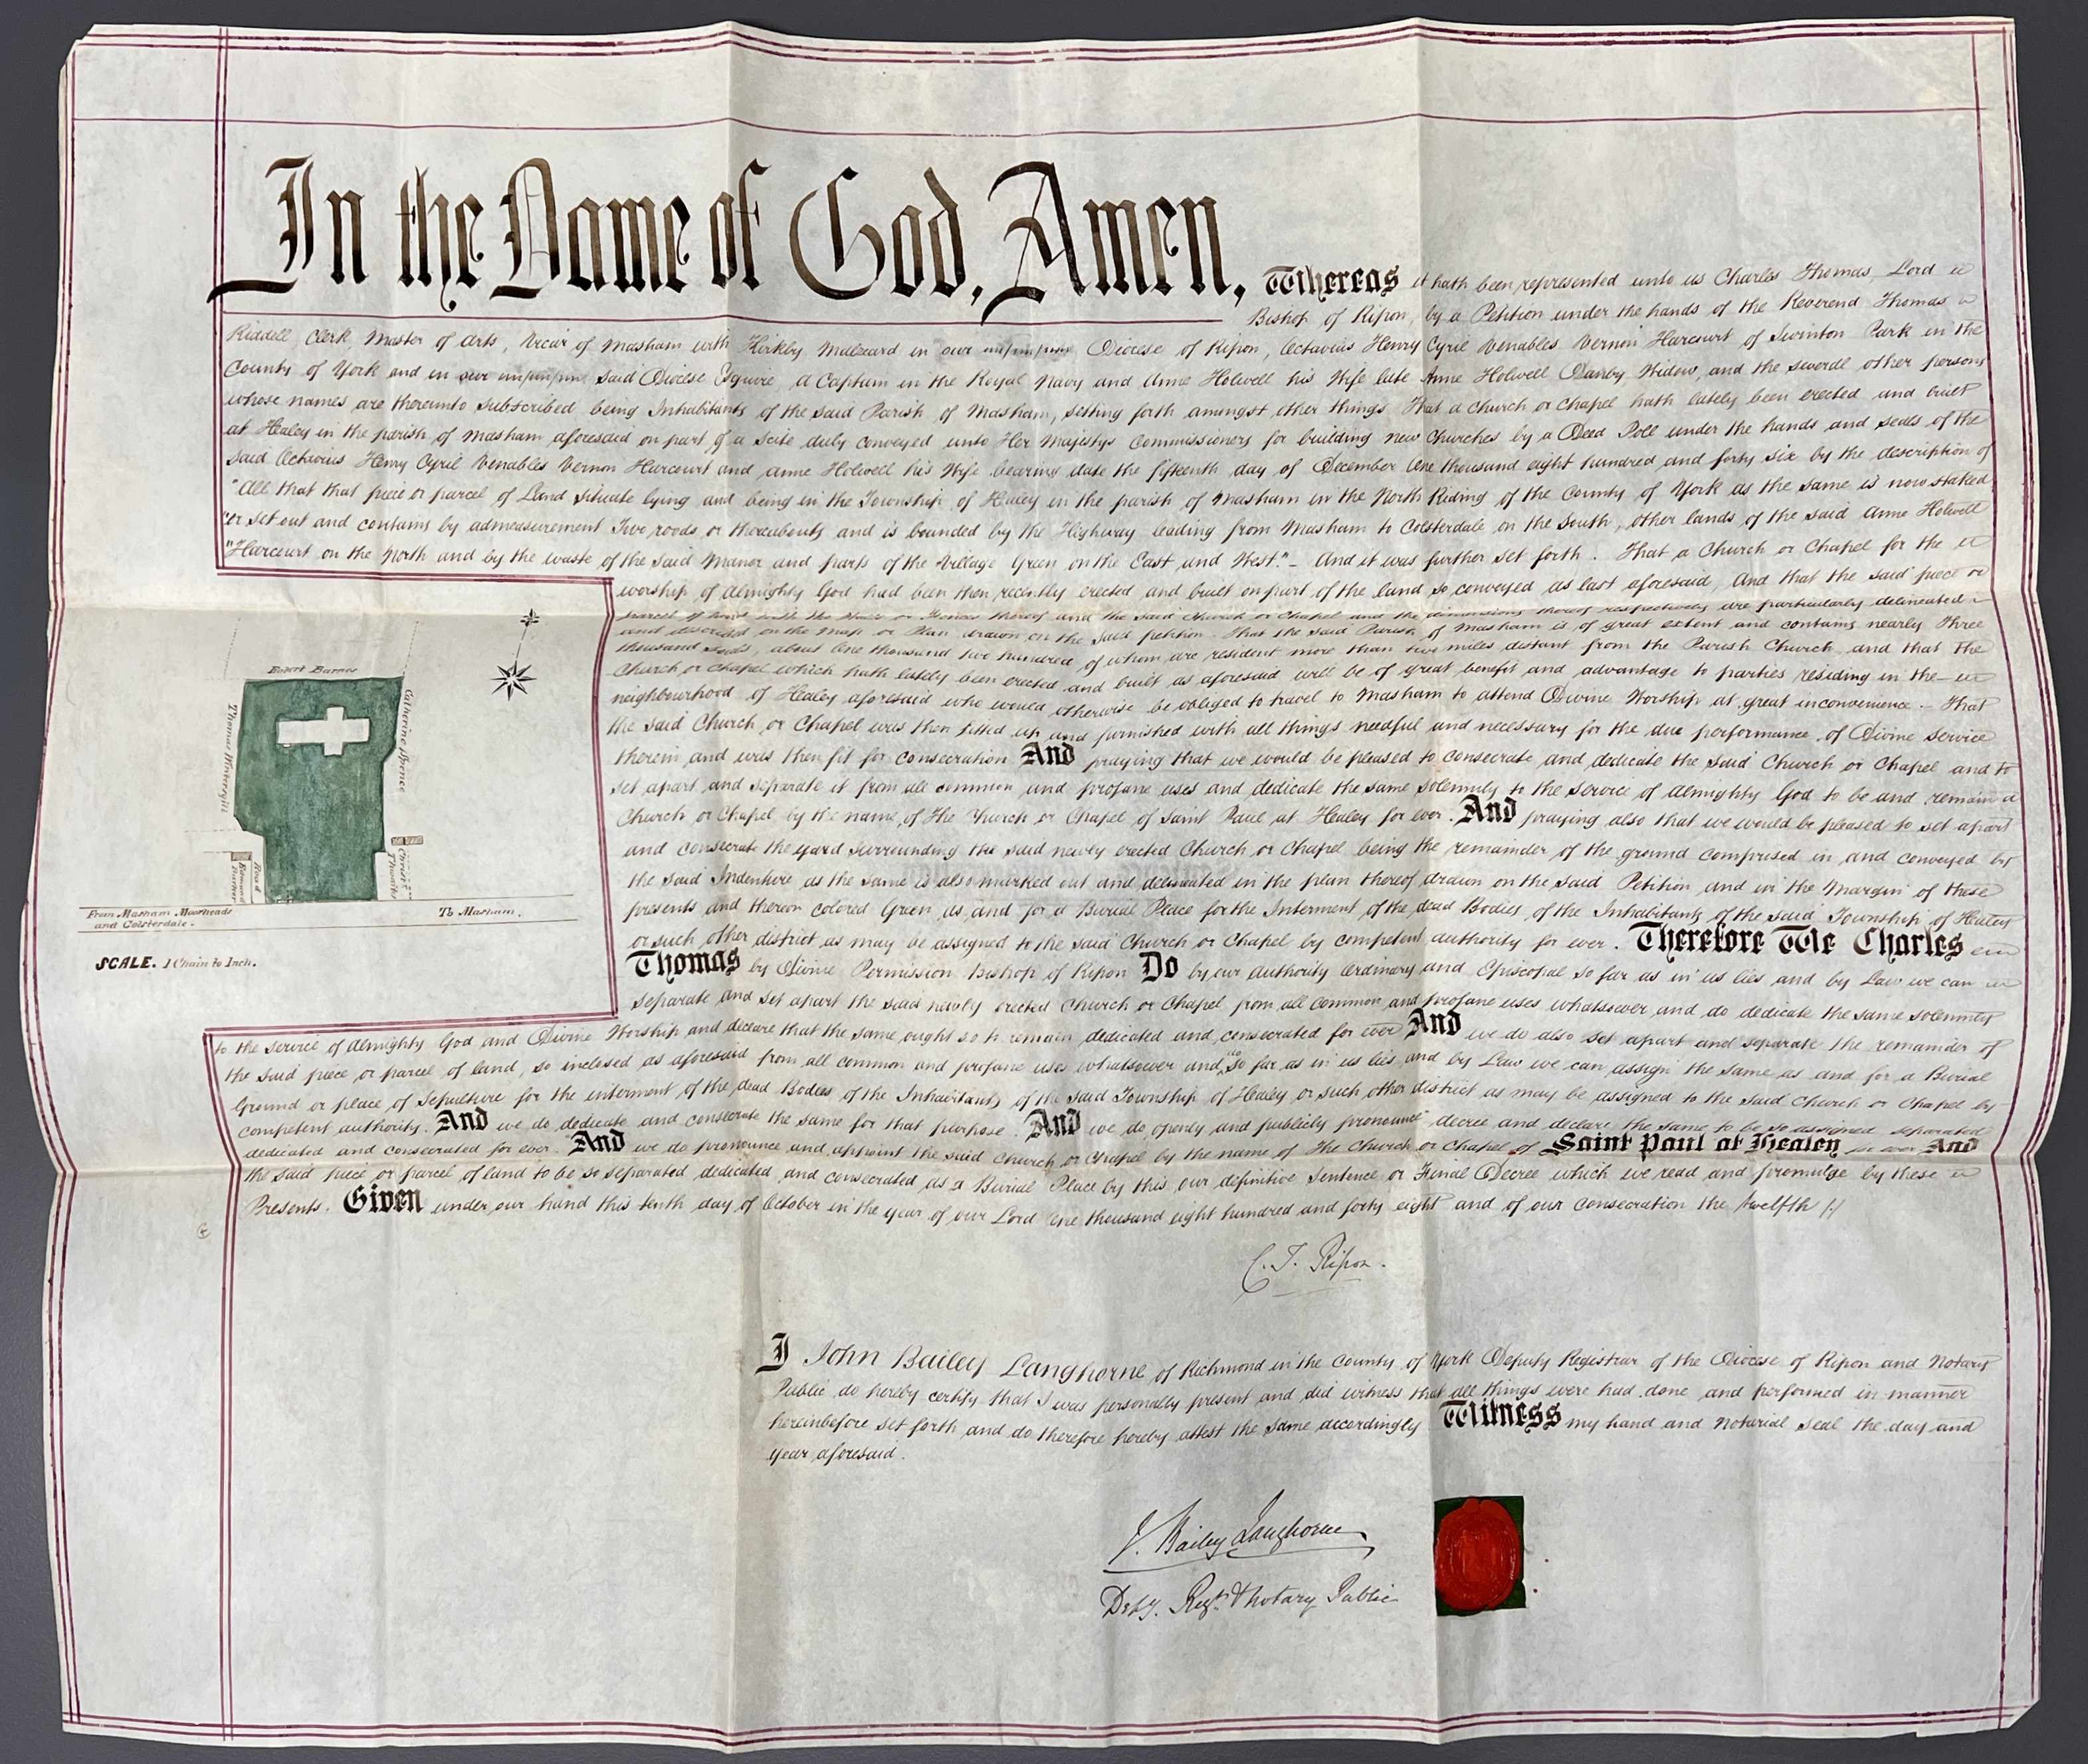 In the Name of God, Amen, Whereas it hath been represented unto us Charles Thomas, Lord
Bishop of Ripon, by a Petition under the hands of the Reverend Thomas
Riddell Clerk, Master of Arts, Vicar of Masham with Kirkby Malzeard in our Diocese of Ripon, Octavius Henry Cyril Venables Vernon Harcourt of Swinton Park in the
County of York and in our said Diocese Esquire, a Captain in the Royal Navy and Anne Holwell his Wife late Anne Holwell Danby, Widow, and the several other persons
whose names are thereunto subscribed being Inhabitants of the said Parish of Masham, setting forth amongst other things That a Church or Chapel hath lately been erected and built
at Healey in the parish of Masham aforesaid on part of a Scite duly conveyed unto Her Majestys Commissioners for building new Churches by a Deed Poll under the hands and seals of the
said Octavius Henry Cyril Venables Vernon Harcourt and Anne Holwell his Wife bearing date the fifteenth day of December One thousand eight hundred and forty six by the description of
"All that that piece or parcel of Land situate lying and being in the Township of Healey in the parish of Masham in the North Riding of the County of York as the same is now staked
"or set out and contains by admeasurement Two roods or thereabouts and is bounded by the Highway leading from Masham to Colsterdale on the South, other lands of the said Anne Holwell
"Harcourt on the North and by the waste of the said Manor and parts of the Village Green on the East and West." - And it was further set forth. That a Church or Chapel for the
worship of Almighty God had been then recently erected and built on part of the land so conveyed as last aforesaid, And that the said piece or
parcel of land with the or Fences thereof and the said Church or Chapel and the dimensions thereof respectively are particularly delineated
and described on the Map or Plan drawn on the said petition. That the said Parish of Masham is of great extent and contains nearly Three
thousand Souls, about One thousand two hundred, of whom are resident more than two miles distant from the Parish Church, and that the
Church or Chapel which hath lately been erected and built as aforesaid will be of great benefit and advantage to parties residing in the
neighbourhood of Healey aforesaid who would otherwise be obliged to travel to Masham to attend Divine Worship at great inconvenience - That
the said Church or Chapel was then fitted up and furnished with all things needful and necessary for the due performance of Divine Service
therein and was then fit for consecration And praying that we would be pleased to consecrate and dedicate the said Church or Chapel and to
set apart and separate it from all common and profane uses and dedicate the same solemnly to the service of Almighty God to be and remain a
Church or Chapel by the name of The Church or Chapel of Saint Paul at Healey for ever. And praying also that we would be pleased to set apart
and consecrate the yard surrounding the said newly erected Church or Chapel being the remainder of the ground comprised in and conveyed by
the said Indenture as the same is also marked out and delineated in the plan thereof drawn on the said Petition and in the Margin of these
presents and thereon colored Green as and for a Burial Place for the Interment of the dead Bodies of the Inhabitants of the said Township of Healey
or such other district as may be assigned to the said Church or Chapel by competent authority for ever. Therefore We Charles
Thomas by Divine Permission Bishop of Ripon Do by our Authority Ordinary and Episcopal so far as in us lies and by Law we can
separate and set apart the said newly erected Church or Chapel from all common and profane uses whatsoever and do dedicate the same solemnly
to the service of Almighty God and Divine Worship and declare that the same ought so to remain dedicated and consecrated for ever And we do also set apart and separate the remainder of
the said piece or parcel of land, so inclosed as aforesaid from all common and profane uses whatsoever and do so far as in us lies and by Law we can assign the same as and for a Burial
Ground or place of Sepulture for the interment of the dead Bodies of the Inhabitants of the said Township of Healey or such other district as may be assigned to the said Church or Chapel by
competent authority. And we do dedicate and consecrate the same for that purpose. And we do openly and publicly pronounce decree and declare the same to be so assigned separated
dedicated and consecrated for ever. And we do pronounce and appoint the said Church or Chapel by the name of The Church or Chapel of Saint Paul at Healey for ever And
the said piece or parcel of land to be so separated dedicated and consecrated as a Burial Place by this our definitive Sentence or Final Decree which we read and promulge by these
Presents. Given under our hand this tenth day of October in the year of our Lord One thousand eight hundred and forty eight and of our consecration the twelfth
Robert Barnes
Thomas Wintersgill
Catherine Spence
Road
Christ.r Thwaites
From Masham Moorheads
and Colsterdale.
To Masham.
SCALE. 1 Chain to Inch.
C. T. Ripon.
I John Bailey Langhorne of Richmond in the County of York Deputy Registrar of the Diocese of Ripon and Notary
Public do hereby certify that I was personally present and did witness that all things were had done and performed in manner
hereinbefore set forth and do therefore hereby attest the same accordingly Witness my hand and Notarial Seal the day and
year aforesaid.
J. Bailey Langhorne
Depy. Regr. & Notary Public